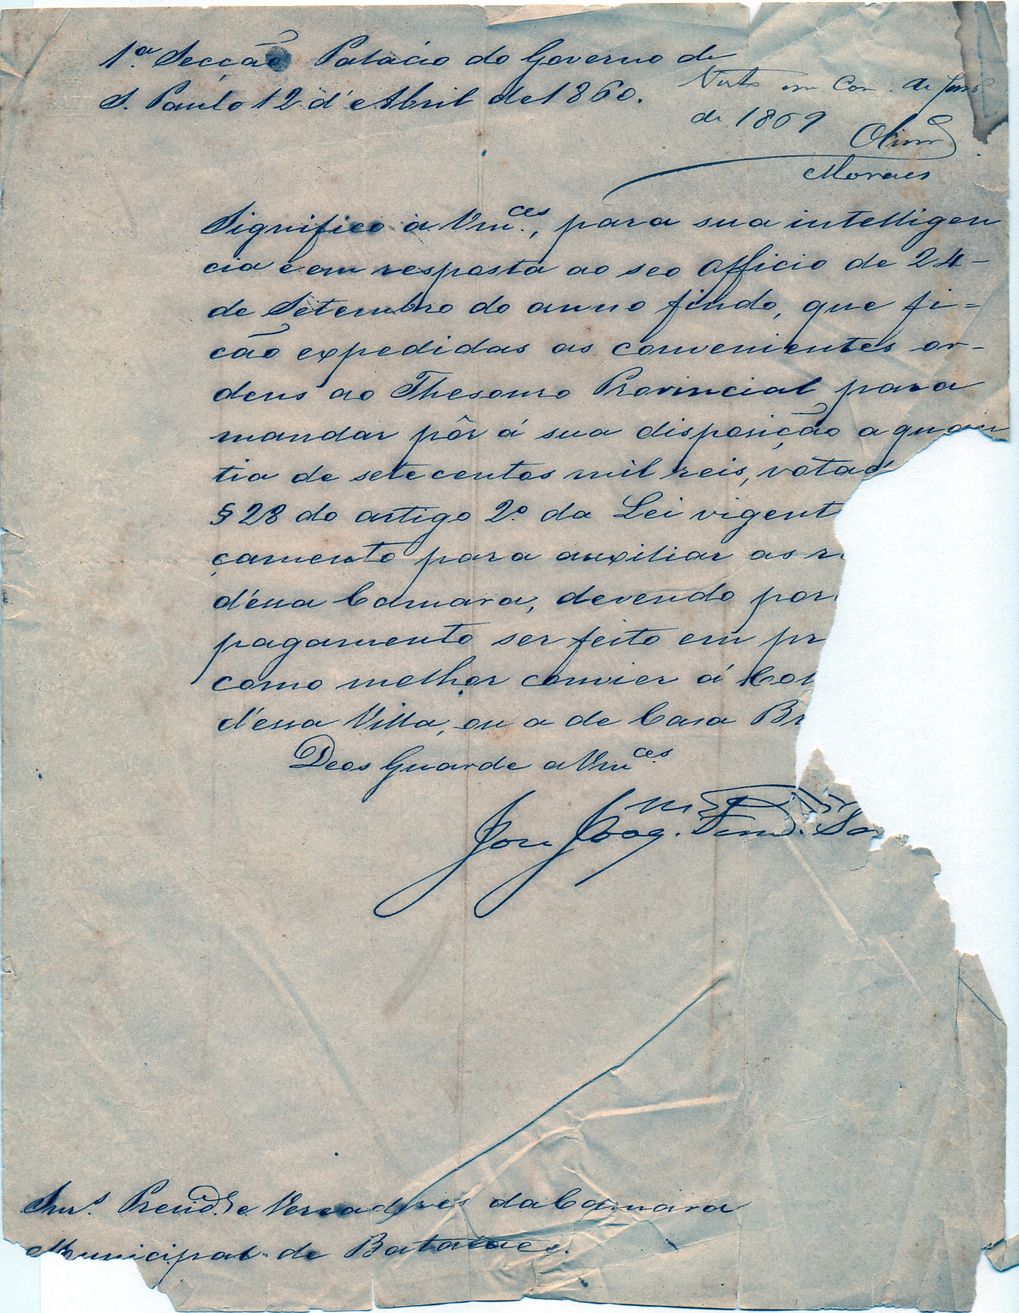 1ª Secção Palacio do Governo de
S. Paulo 12 d'Abril de 1860.
Visto em Com. de
de 1869
Moraes
Significo a Vm.ces, para sua intelligen
cia e em resposta ao seo officio de 24-
de Setembro do anno findo, que fi-
cão expedidas as convenientes or-
dens ao Thesouro Provincial para
mandar pôr á sua disposição a quan
tia de setecentos mil reis, votad
§ 28 do artigo 2º da Lei vigent
çamento para auxiliar as r
d'essa Camara, devendo por
pagamento ser feito em pr
como melhor convier á Col
d'essa Villa, ou a de Casa Br
Deos Guarde a Vm.ces
José Joaq. Fernd.
Snr.s Presid.e e Vereadores da Camara
Municipal de Batataes.